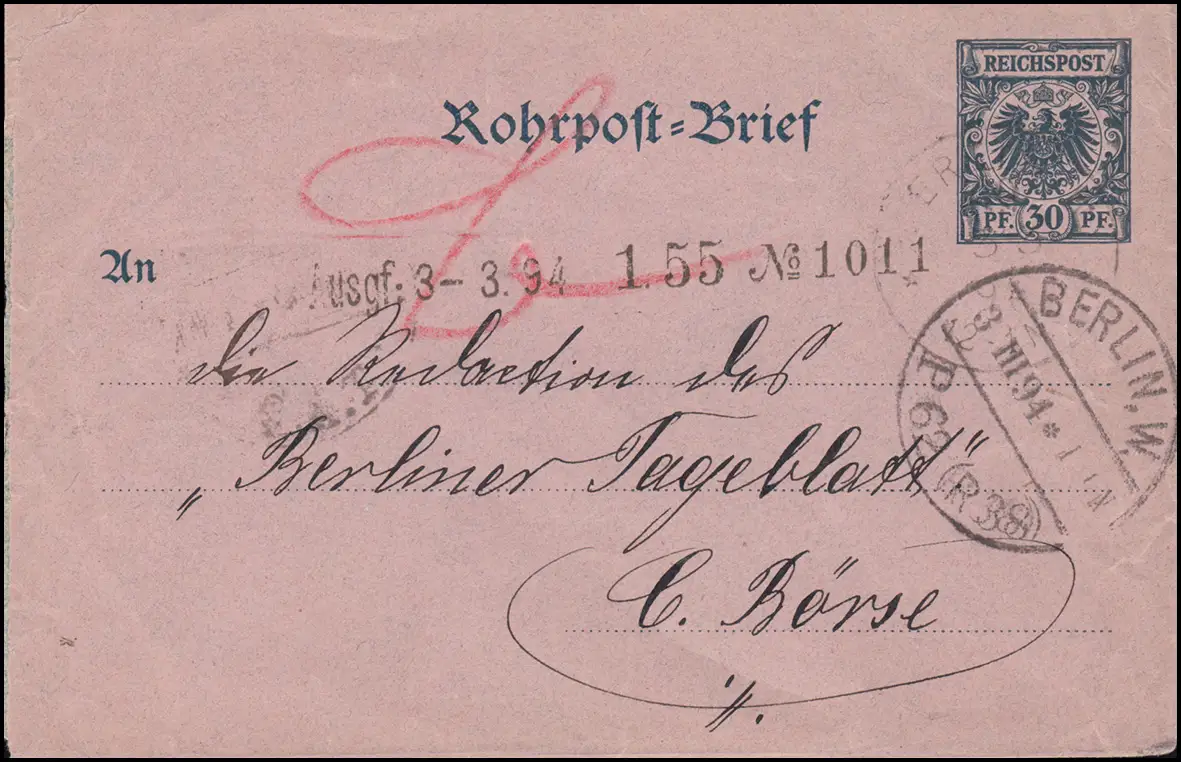 REICHSPOST
PF. 30 PF.
Rohrpost-Brief
An
Ausgf: 3-3.94 1.55 № 1011
die Redaction des
„Berliner Tageblatt"
C. Börse
BERLIN, W.
P 62 (R 38)